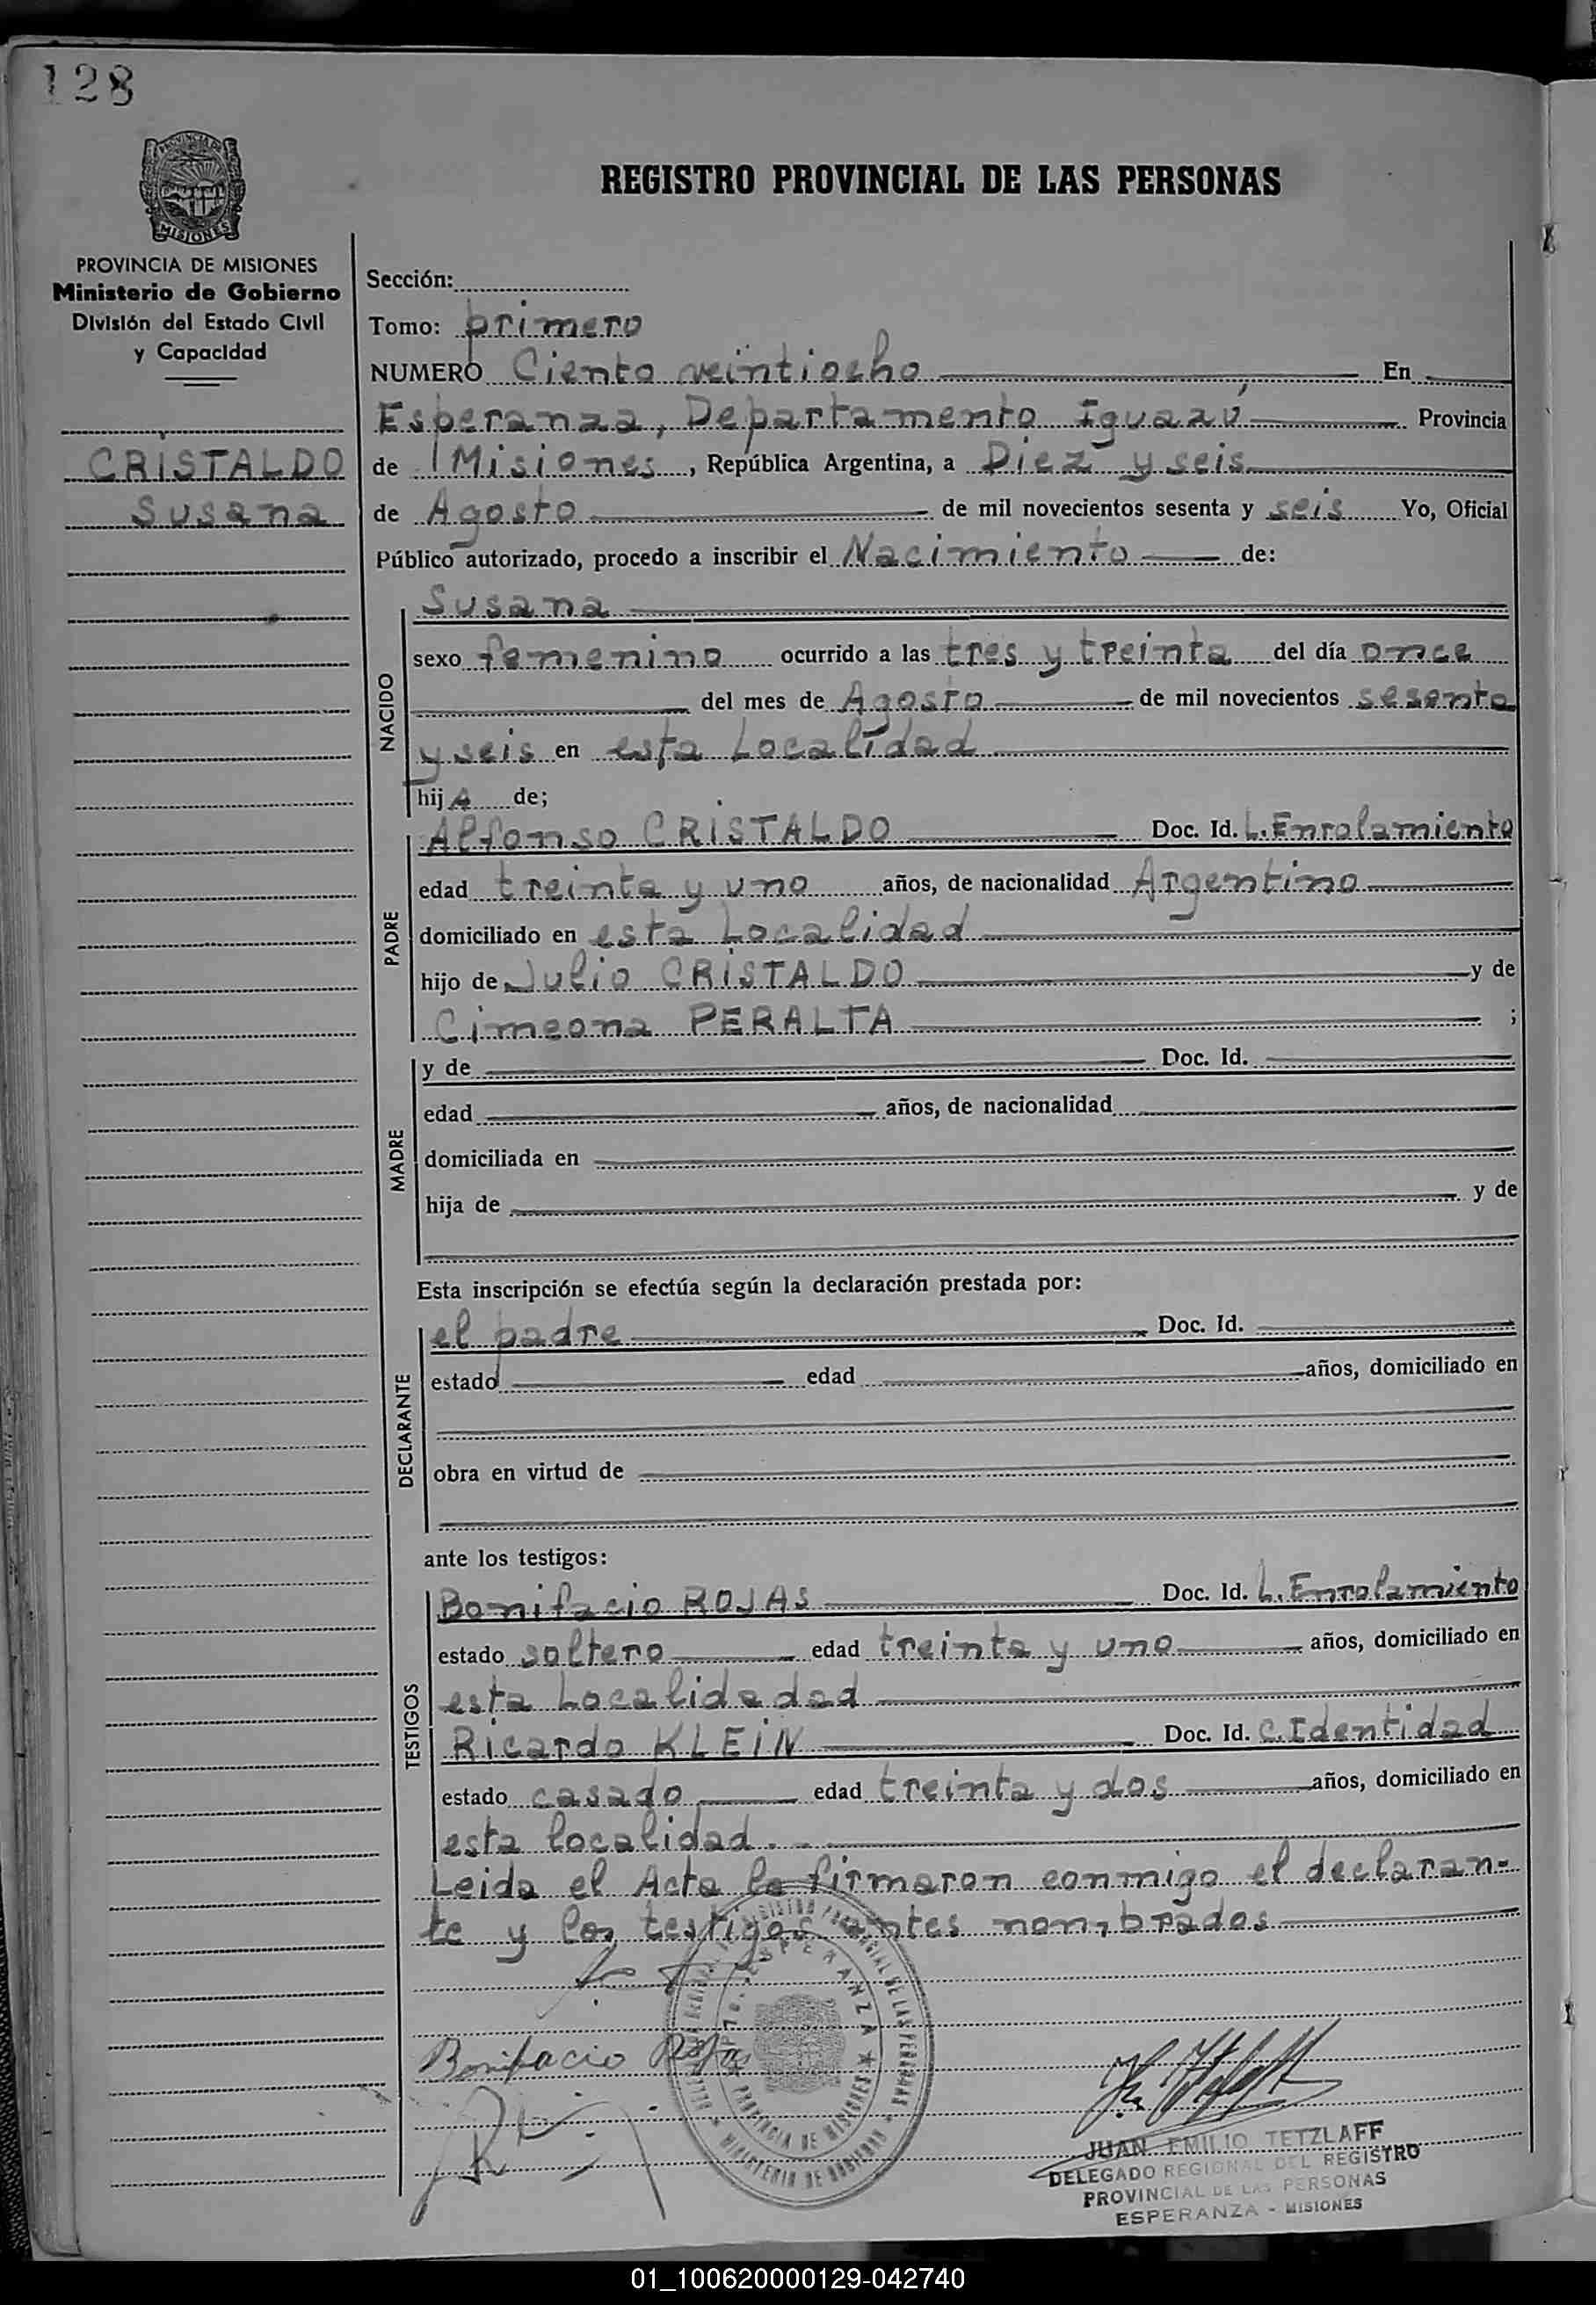 128
PROVINCIA DE
MISIONES
REGISTRO PROVINCIAL DE LAS PERSONAS
PROVINCIA DE MISIONES
Ministerio de Gobierno
División del Estado Civil
y Capacidad
CRISTALDO
Susana
Sección:
Tomo: primero
NUMERO Ciento veintiocho En
Esperanza, Departamento Iguazú Provincia
de Misiones, República Argentina, a Diez y seis
de Agosto de mil novecientos sesenta y seis Yo, Oficial
Público autorizado, procedo a inscribir el Nacimiento de:
NACIDO
Susana
sexo femenino ocurrido a las tres y treinta del día once
del mes de Agosto de mil novecientos sesenta
y seis en esta Localidad
hij A de;
PADRE
Alfonso CRISTALDO Doc. Id. L. Enrolamiento
edad treinta y uno años, de nacionalidad Argentino
domiciliado en esta Localidad
hijo de Julio CRISTALDO y de
Cimeona PERALTA ;
MADRE
y de Doc. Id.
edad años, de nacionalidad
domiciliada en
hija de y de
Esta inscripción se efectúa según la declaración prestada por:
DECLARANTE
el padre Doc. Id.
estado edad años, domiciliado en
obra en virtud de
ante los testigos:
TESTIGOS
Bonifacio ROJAS Doc. Id. L. Enrolamiento
estado soltero edad treinta y uno años, domiciliado en
esta Localidadad
Ricardo KLEIN Doc. Id. C. Identidad
estado casado edad treinta y dos años, domiciliado en
esta localidad. -
Leida el Acta la firmaron conmigo el declaran-
te y los testigos antes nombrados
Bonifacio Rojas
REGISTRO PROVINCIAL DE LAS PERSONAS
MINISTERIO DE GOBIERNO
ESPERANZA
PROVINCIA DE MISIONES
JUAN EMILIO TETZLAFF
DELEGADO REGIONAL DEL REGISTRO
PROVINCIAL DE LAS PERSONAS
ESPERANZA - MISIONES
01_100620000129-042740